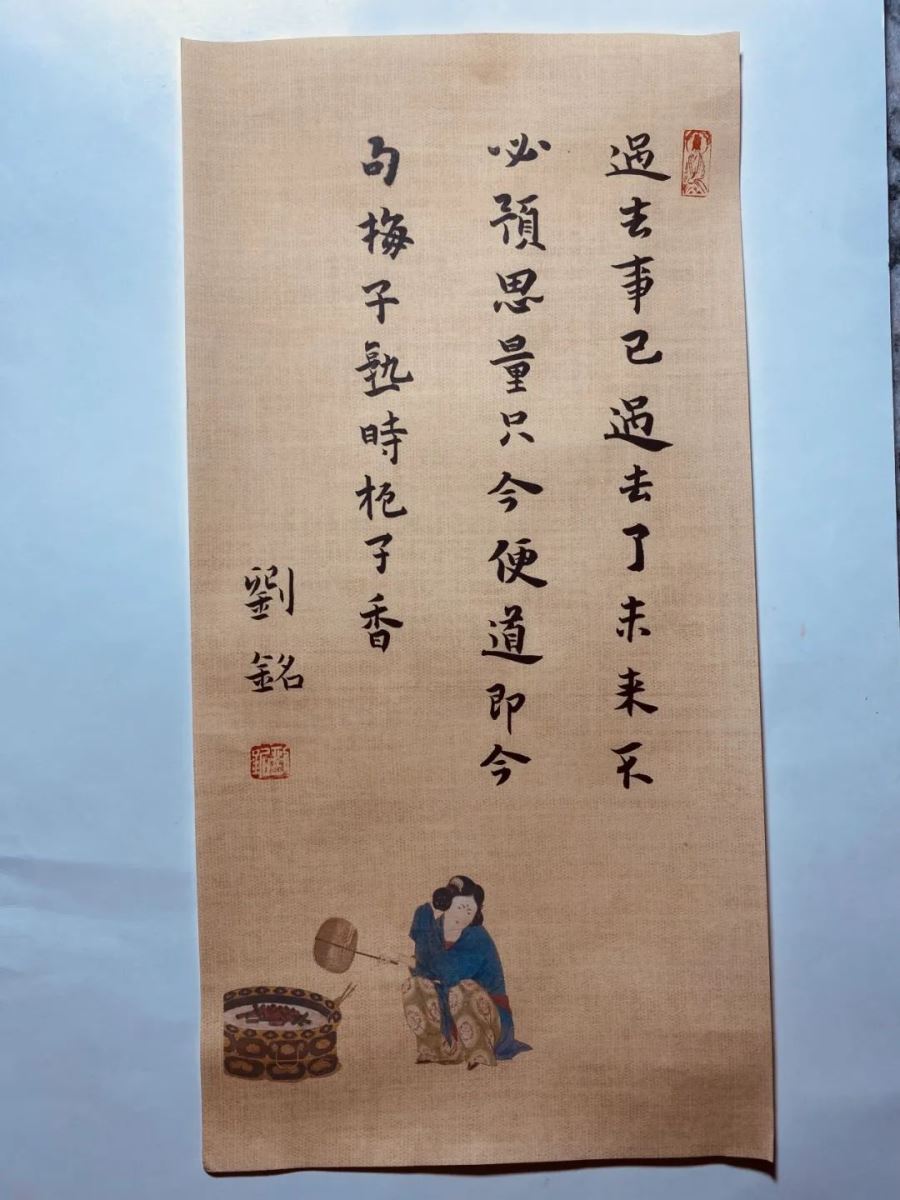 過去事已過去了未来不
必預思量只今便道即今
句梅子熟時栀子香
劉銘